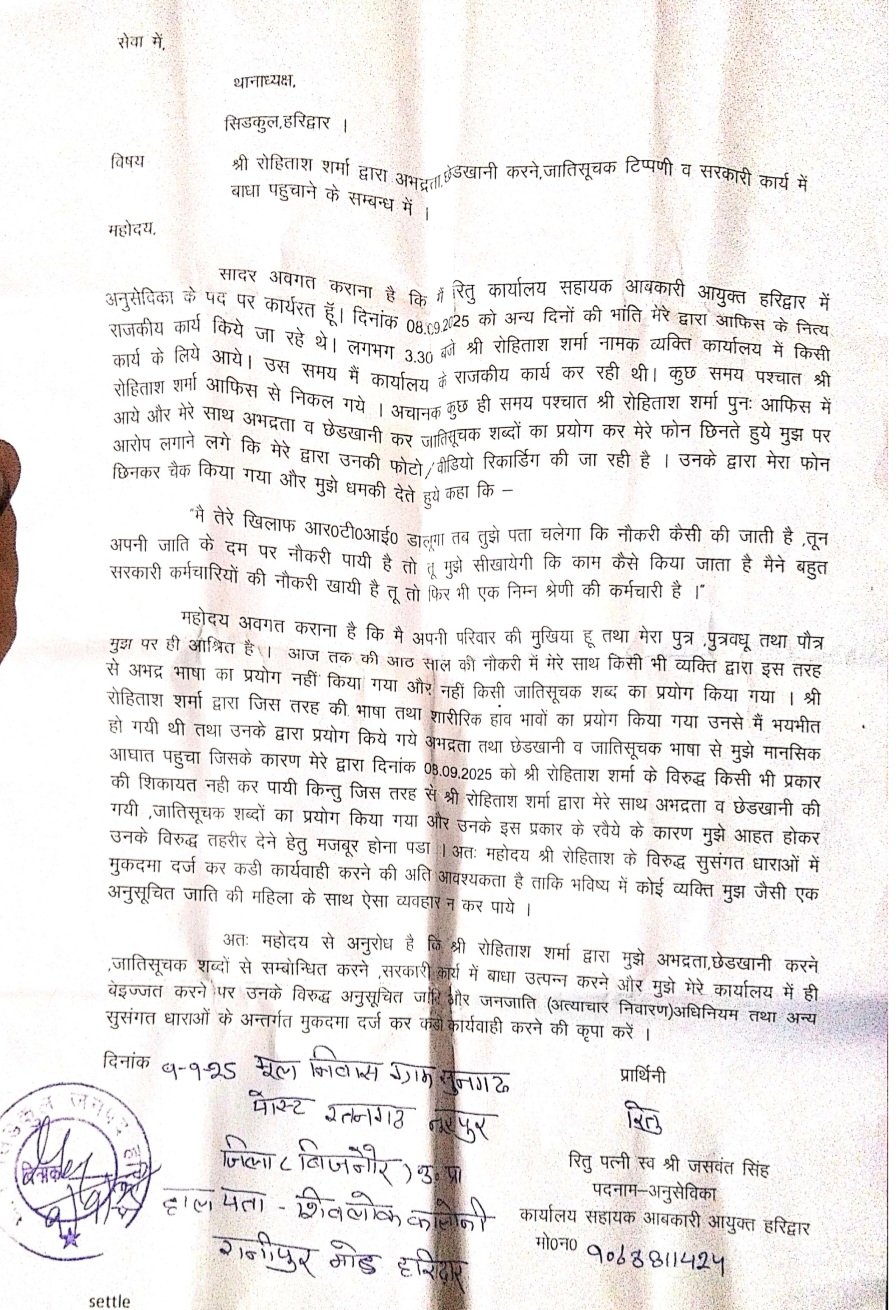 सेवा में,
थानाध्यक्ष,
सिडकुल,हरिद्वार ।
विषय श्री रोहिताश शर्मा द्वारा अभद्रता,छेडखानी करने,जातिसूचक टिप्पणी व सरकारी कार्य में
बाधा पहुचाने के सम्बन्ध में ।
महोदय,
सादर अवगत कराना है कि मैं रितु कार्यालय सहायक आबकारी आयुक्त हरिद्वार में
अनुसेविका के पद पर कार्यरत हूॅ। दिनांक 08.09.2025 को अन्य दिनों की भांति मेरे द्वारा आफिस के नित्य
राजकीय कार्य किये जा रहे थे। लगभग 3.30 बजे श्री रोहिताश शर्मा नामक व्यक्ति कार्यालय में किसी
कार्य के लिये आये। उस समय मैं कार्यालय के राजकीय कार्य कर रही थी। कुछ समय पश्चात श्री
रोहिताश शर्मा आफिस से निकल गये । अचानक कुछ ही समय पश्चात श्री रोहिताश शर्मा पुनः आफिस में
आये और मेरे साथ अभद्रता व छेडखानी कर जातिसूचक शब्दों का प्रयोग कर मेरे फोन छिनते हुये मुझ पर
आरोप लगाने लगे कि मेरे द्वारा उनकी फोटो/वीडियो रिकार्डिग की जा रही है । उनके द्वारा मेरा फोन
छिनकर चैक किया गया और मुझे धमकी देते हुये कहा कि –
"मै तेरे खिलाफ आर0टी0आई0 डालूगा तब तुझे पता चलेगा कि नौकरी कैसी की जाती है ,तून
अपनी जाति के दम पर नौकरी पायी है तो तू मुझे सीखायेगी कि काम कैसे किया जाता है मैने बहुत
सरकारी कर्मचारियों की नौकरी खायी है तू तो फिर भी एक निम्न श्रेणी की कर्मचारी है ।"
महोदय अवगत कराना है कि मै अपनी परिवार की मुखिया हू तथा मेरा पुत्र ,पुत्रवधू तथा पौत्र
मुझ पर ही आश्रित है । आज तक की आठ साल की नौकरी में मेरे साथ किसी भी व्यक्ति द्वारा इस तरह
से अभद्र भाषा का प्रयोग नहीं किया गया और नहीं किसी जातिसूचक शब्द का प्रयोग किया गया । श्री
रोहिताश शर्मा द्वारा जिस तरह की भाषा तथा शारीरिक हाव भावों का प्रयोग किया गया उनसे मैं भयभीत
हो गयी थी तथा उनके द्वारा प्रयोग किये गये अभद्रता तथा छेडखानी व जातिसूचक भाषा से मुझे मानसिक
आघात पहुचा जिसके कारण मेरे द्वारा दिनांक 08.09.2025 को श्री रोहिताश शर्मा के विरुद्ध किसी भी प्रकार
की शिकायत नही कर पायी किन्तु जिस तरह से श्री रोहिताश शर्मा द्वारा मेरे साथ अभद्रता व छेडखानी की
गयी ,जातिसूचक शब्दों का प्रयोग किया गया और उनके इस प्रकार के रवैये के कारण मुझे आहत होकर
उनके विरुद्ध तहरीर देने हेतु मजबूर होना पडा । अतः महोदय श्री रोहिताश के विरुद्ध सुसंगत धाराओं में
मुकदमा दर्ज कर कडी कार्यवाही करने की अति आवश्यकता है ताकि भविष्य में कोई व्यक्ति मुझ जैसी एक
अनुसूचित जाति की महिला के साथ ऐसा व्यवहार न कर पाये ।
अतः महोदय से अनुरोध है कि श्री रोहिताश शर्मा द्वारा मुझे अभद्रता,छेडखानी करने
,जातिसूचक शब्दों से सम्बोन्धित करने ,सरकारी कार्य में बाधा उत्पन्न करने और मुझे मेरे कार्यालय में ही
बेइज्जत करने पर उनके विरुद्ध अनुसूचित जाति और जनजाति (अत्याचार निवारण)अधिनियम तथा अन्य
सुसंगत धाराओं के अन्तर्गत मुकदमा दर्ज कर कडी कार्यवाही करने की कृपा करें ।
दिनांक ९-९-25 मूल निवास ग्राम सुनगढ प्रार्थिनी
पोस्ट रतनगढ नूरपुर रितु
जिला (बिजनौर) उ. प्रा
रितु पत्नी स्व श्री जसवंत सिंह
हाल पता - शिवलोक कालोनी पदनाम–अनुसेविका
रानीपुर मोड हरिद्वार कार्यालय सहायक आबकारी आयुक्त हरिद्वार
मो0न0 9068811424
दिनांक
settle